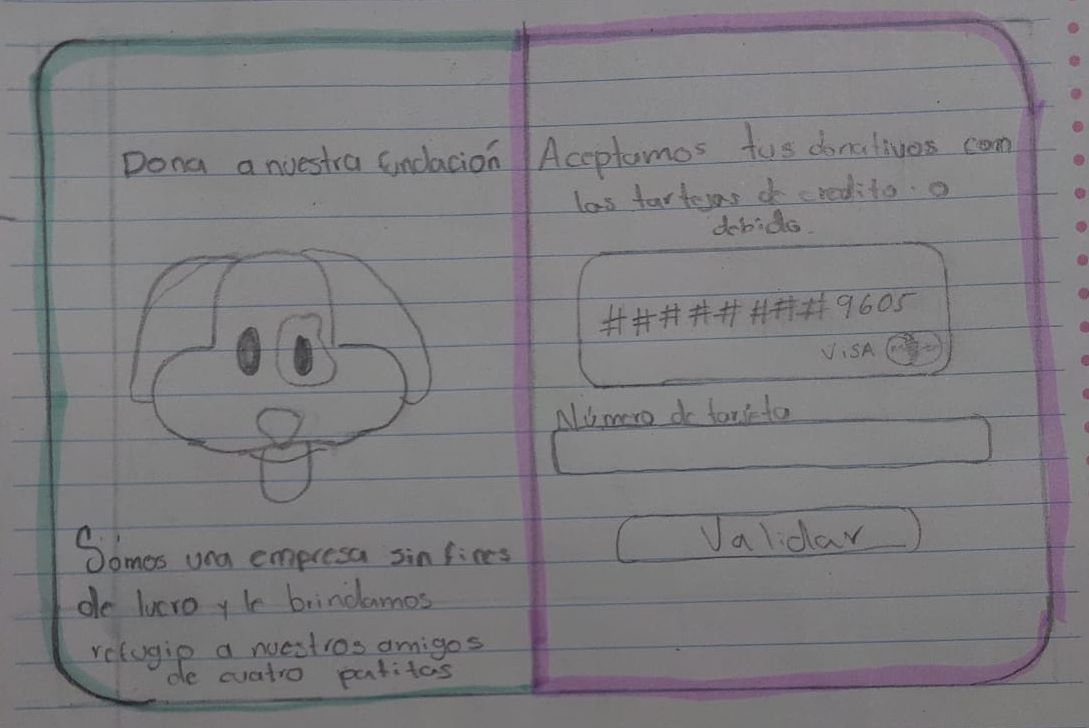 Dona a nuestra fundación
Somos una empresa sin fines
de lucro y le brindamos
refugio a nuestros amigos
de cuatro patitas
Aceptamos tus donativos con
las tartejas de credito o
debido.
######## 9605
VISA
Número de tarjeta
Validar